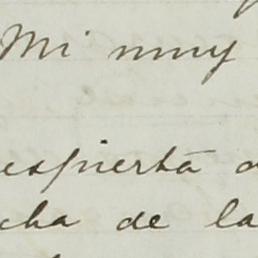 Mi muy
espierta
cha de la